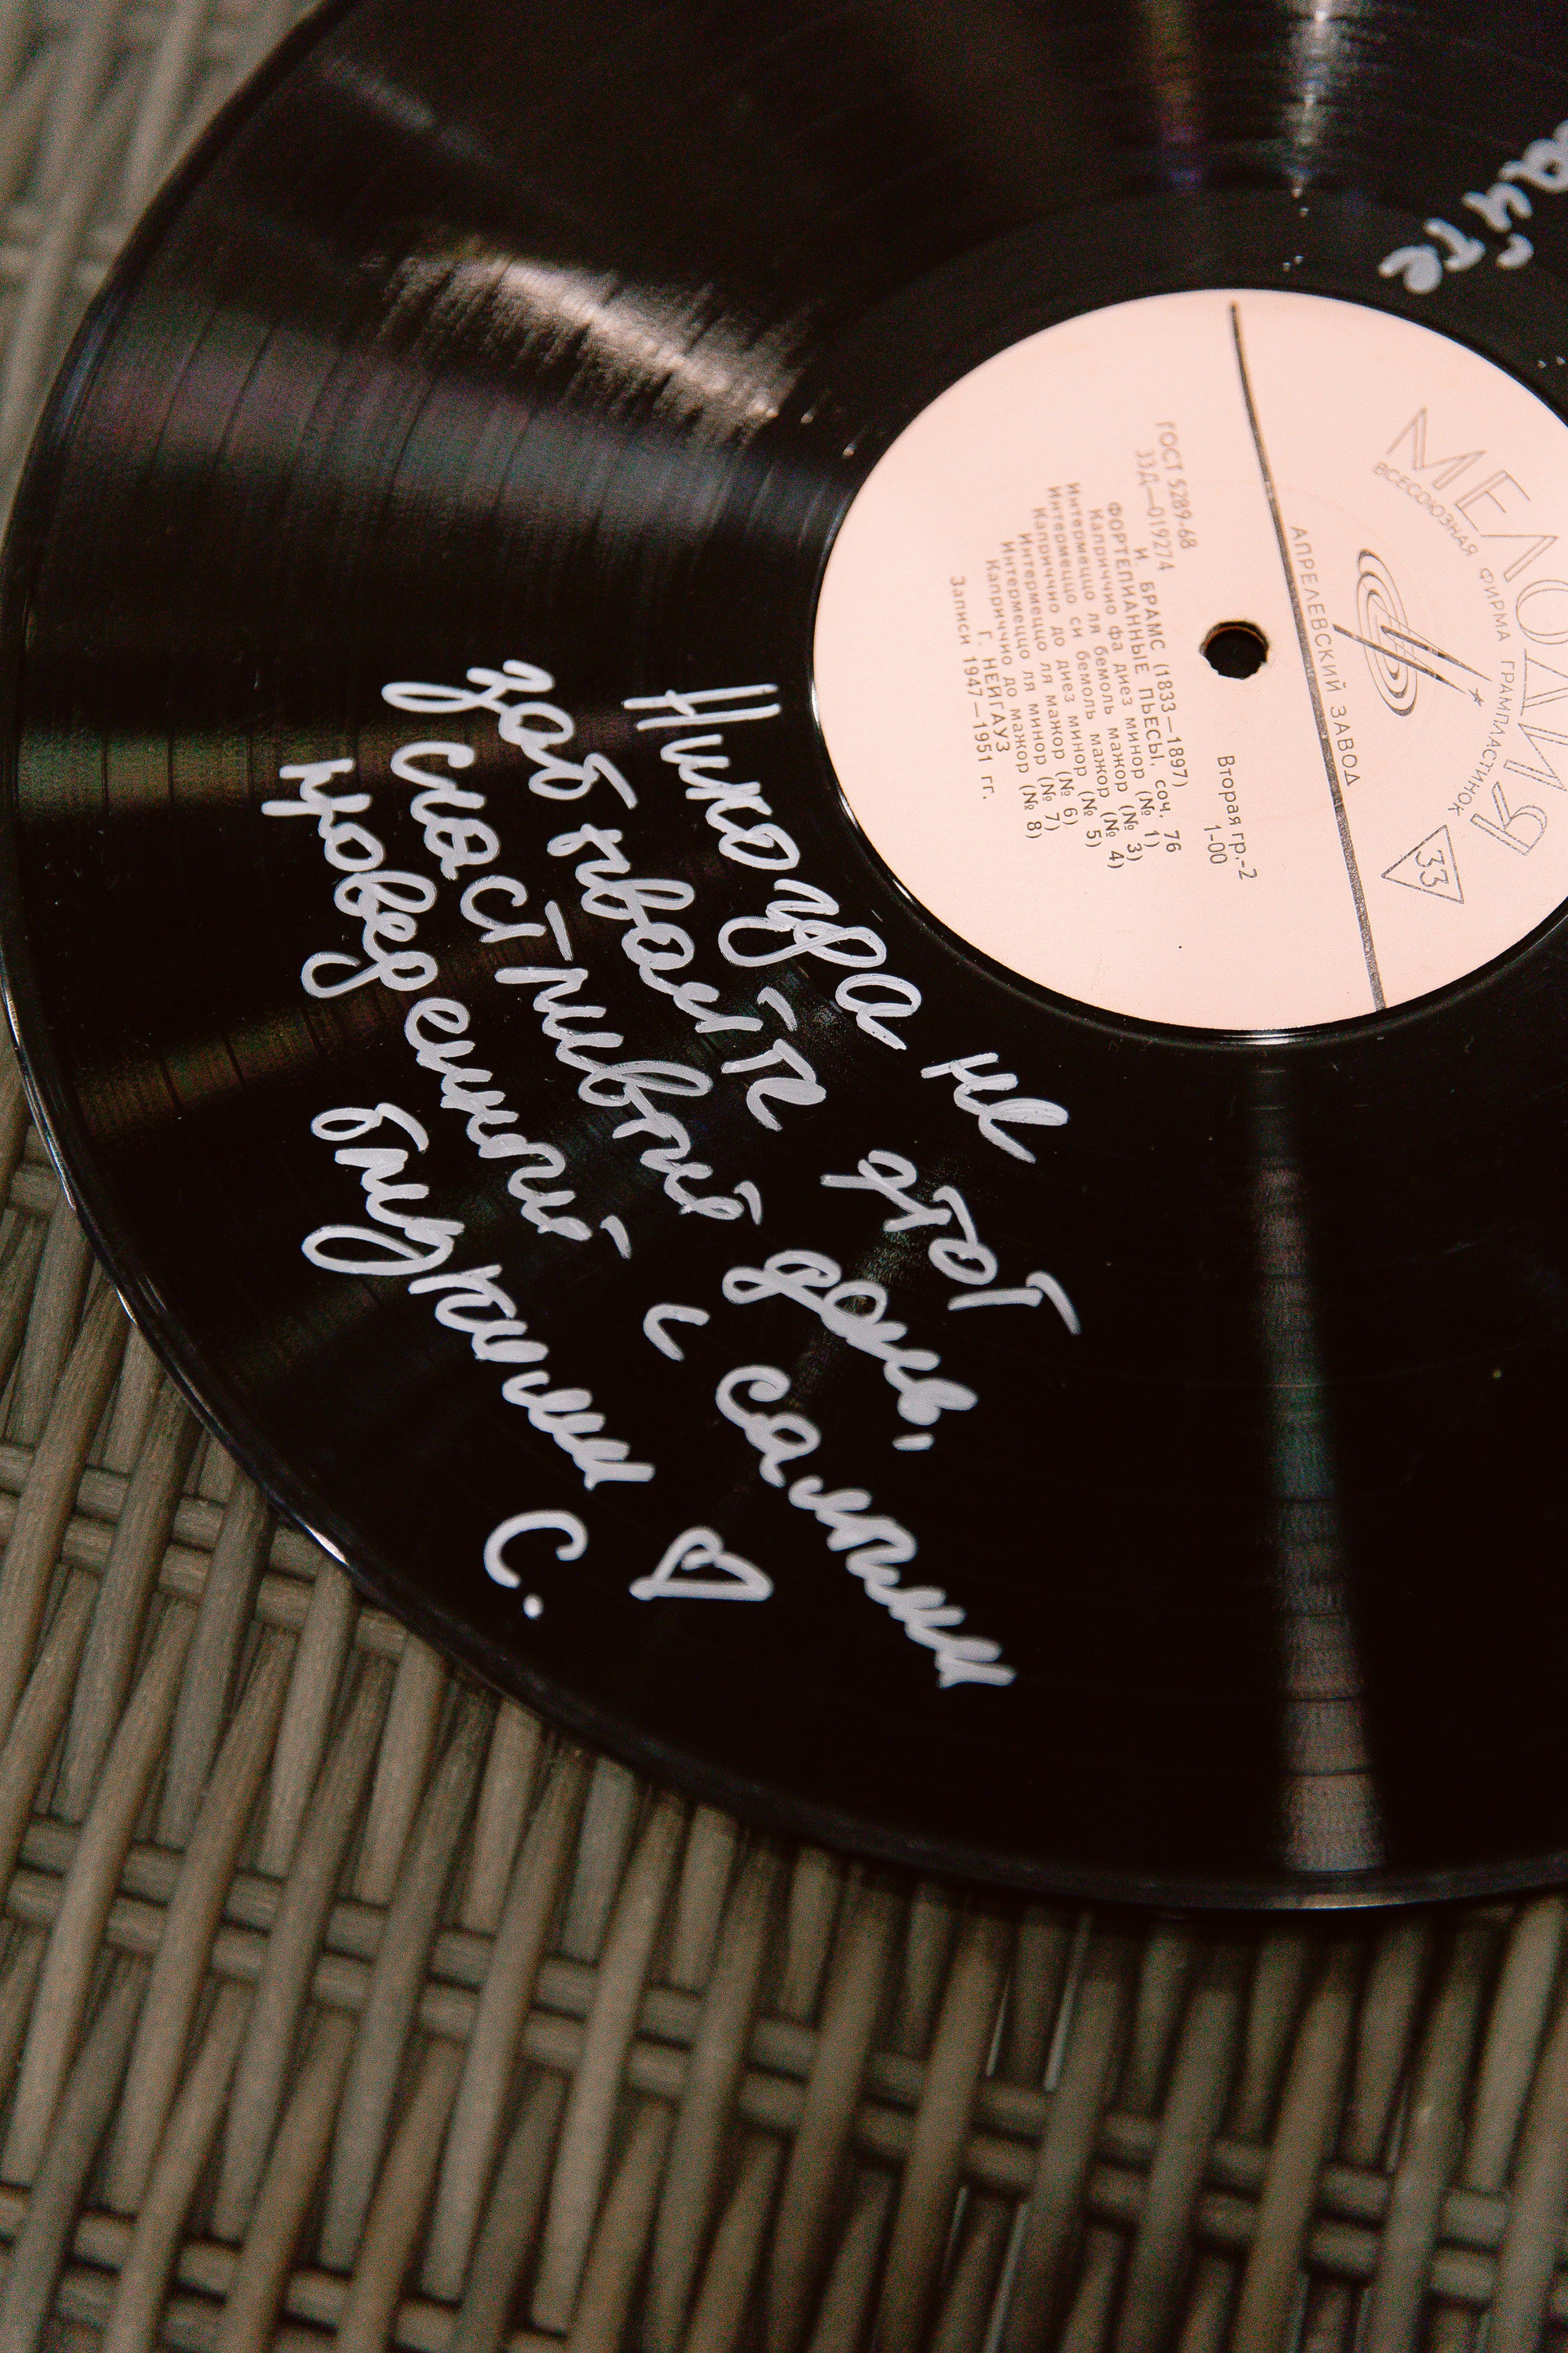 МЕЛОДИЯ
ВСЕСОЮЗНАЯ ФИРМА ГРАМПЛАСТИНОК
АПРЕЛЕВСКИЙ ЗАВОД
33
ГОСТ 5289-68
33Д—019274
Вторая гр.-2
1-00
И. БРАМС (1833—1897)
ФОРТЕПИАННЫЕ ПЬЕСЫ, соч. 76
Каприччио фа диез минор (№ 1)
Интермеццо ля бемоль мажор (№ 3)
Интермеццо си бемоль мажор (№ 4)
Каприччио до диез минор (№ 5)
Интермеццо ля мажор (№ 6)
Интермеццо ля минор (№ 7)
Каприччио до мажор (№ 8)
Г. НЕЙГАУЗ
Записи 1947—1951 гг.
Никогда не
забывайте этот
счастливый день,
проведенный с самыми
близкими ♡
С.